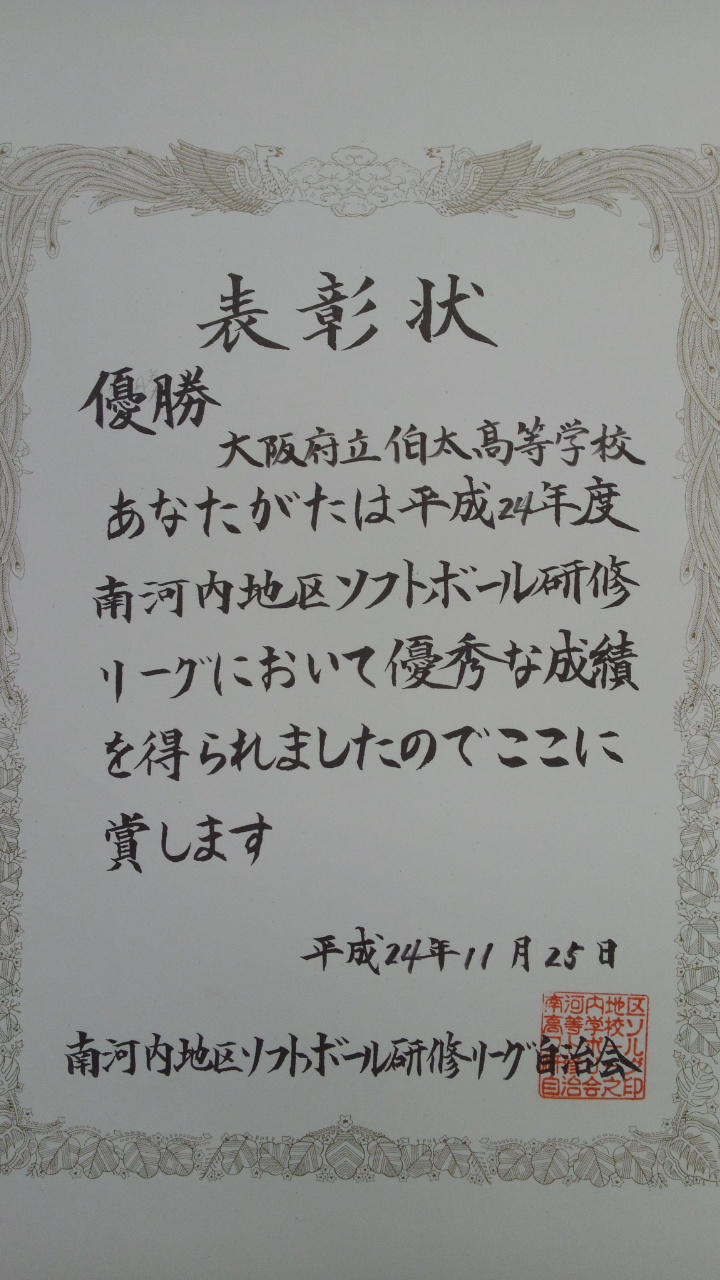 表彰状
優勝
大阪府立伯太高等学校
あなたがたは平成24年度
南河内地区ソフトボール研修
リーグにおいて優秀な成績
を得られましたのでここに
賞します
平成24年11月25日
南河内地区ソフトボール研修リーグ自治会
南河内地区
高等学校ソ
自治会之印